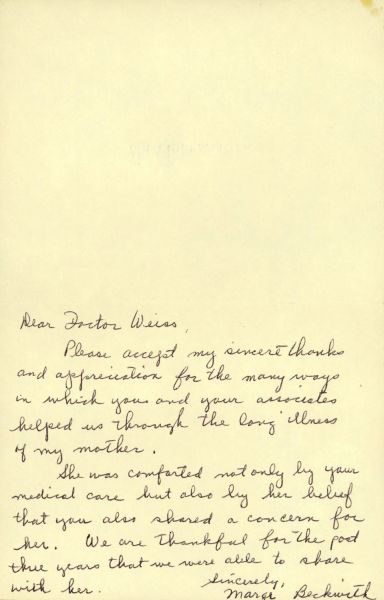 Dear Doctor Weiss,
Please accept my sincere thanks
and appreciation for the many ways
in which you and your associates
helped us through the long illness
of my mother.
She was comforted not only by your
medical care but also by her belief
that you also shared a concern for
her. We are thankful for the past
three years that we were able to share
with her.
Sincerely,
Marge Beckwith